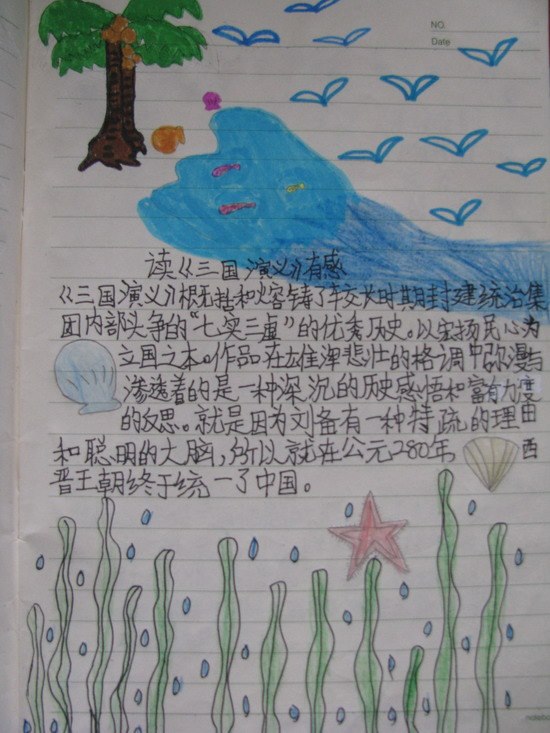 NO.
Date
读《三国演义》有感
《三国演义》概括和熔铸了较长时期封建统治集
团内部斗争的“七实三虚”的优秀历史。以宏扬民心为
立国之本。作品在雄浑悲壮的格调中弥漫与
渗透着的是一种深沉的历史感悟和富有力度
的反思。就是因为刘备有一种特疏的理由
和聪明的大脑,所以就在公元280年 西
晋王朝终于统一了中国。